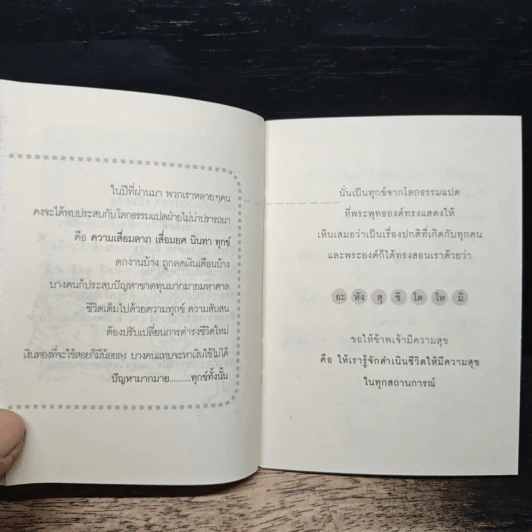 ในปีที่ผ่านมา พวกเราหลายๆคน
คงจะได้พบประสบกับโลกธรรมแปดฝ่ายไม่น่าปรารถนา
คือ ความเสื่อมลาภ เสื่อมยศ นินทา ทุกข์
ตกงานบ้าง ถูกลดเงินเดือนบ้าง
บางคนก็ประสบปัญหาขาดทุนมากมายมหาศาล
ชีวิตเต็มไปด้วยความทุกข์ ความสับสน
ต้องปรับเปลี่ยนการดำรงชีวิตใหม่
เงินทองที่จะใช้สอยก็มีน้อยลง บางคนแทบจะหาเงินใช้ไม่ได้
ปัญหามากมาย..........ทุกข์ทั้งนั้น
นั่นเป็นทุกข์จากโลกธรรมแปด
ที่พระพุทธองค์ทรงแสดงให้
เห็นเสมอว่าเป็นเรื่องปกติที่เกิดกับทุกคน
และพระองค์ก็ได้ทรงสอนเราด้วยว่า
อะ หัง สุ ขิ โต โห มิ
ขอให้ข้าพเจ้ามีความสุข
คือ ให้เรารู้จักดำเนินชีวิตให้มีความสุข
ในทุกสถานการณ์